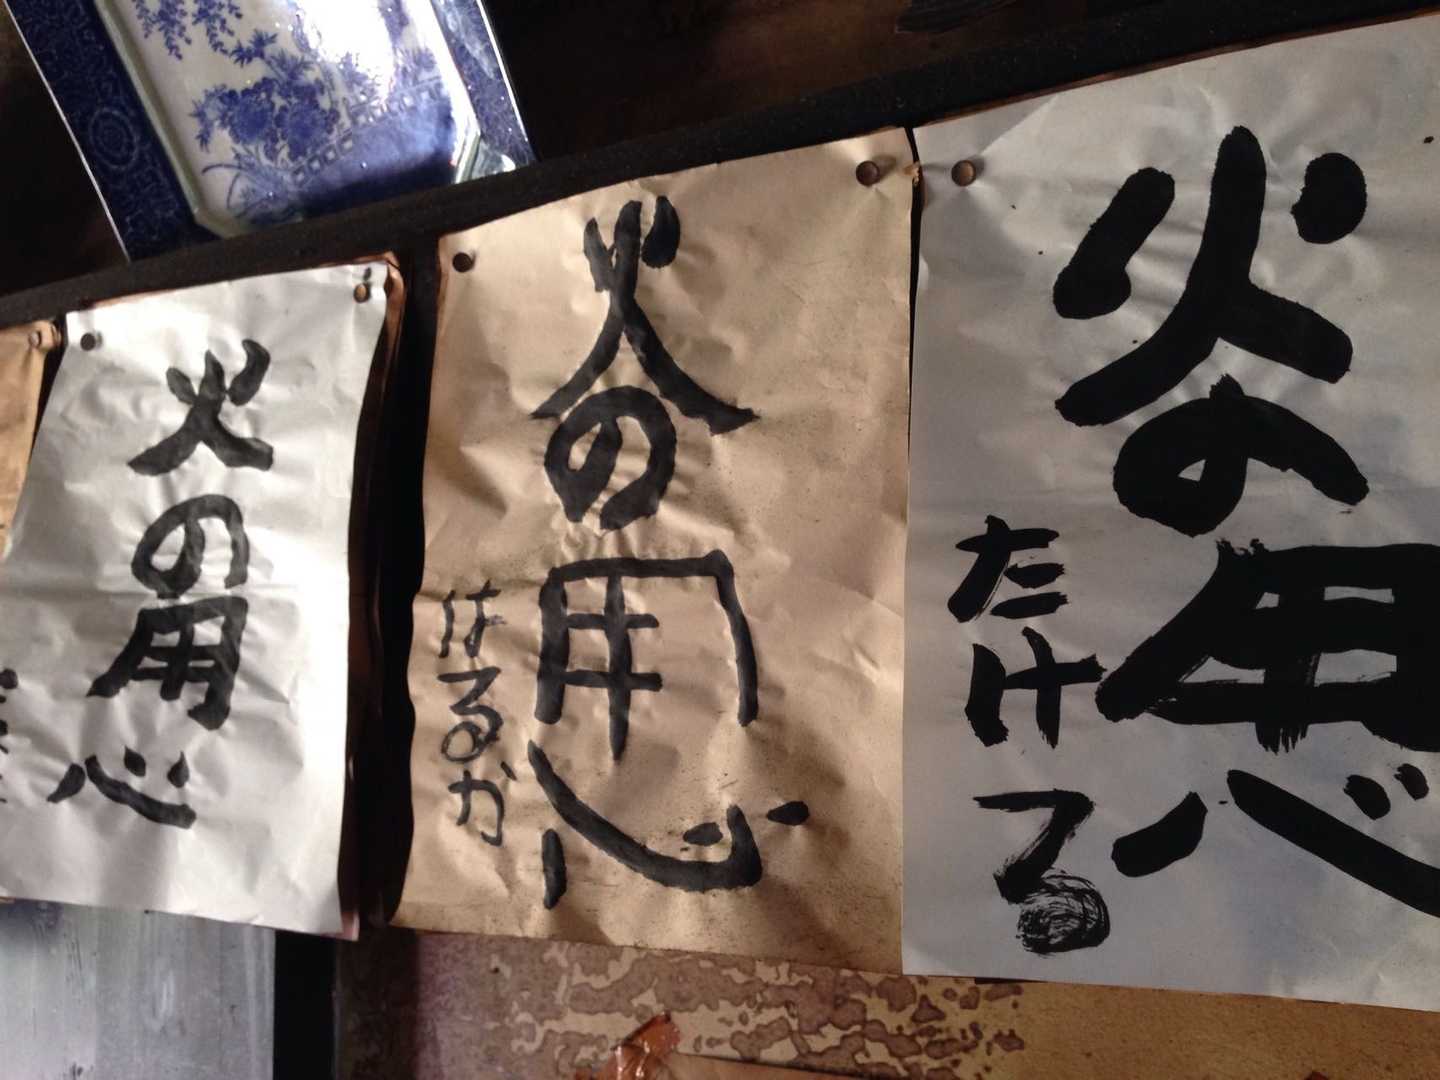 火の用心
たける
火の用心
はるか
火の用心